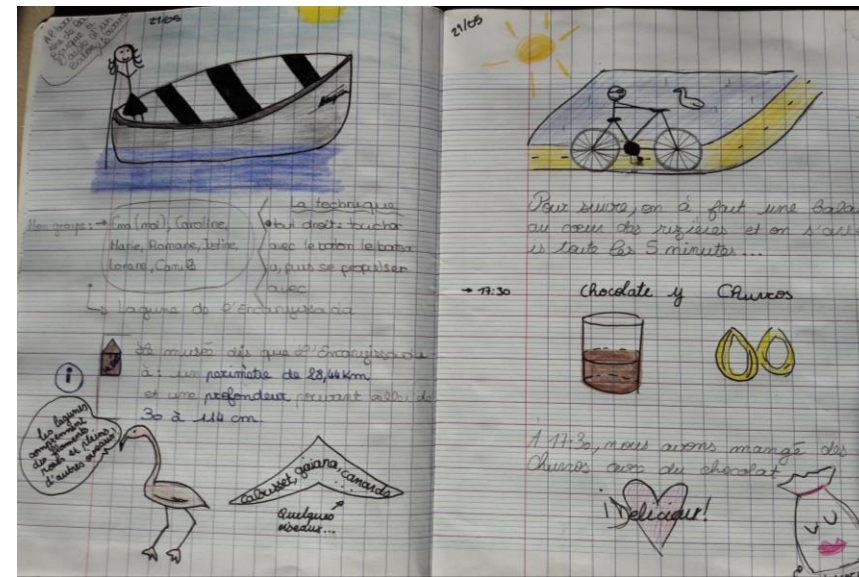 21/05
Mon groupe: → Ema (moi), Caroline,
Marie, Romane, Justine,
La technique
but droit: toucher
avec le baton le bateau
u, puis se propulser
avec
↳ Lagune de l'Encanyissada
i
Le musée dis que l'Encanyissada
à: un perimètre de 28,44Km
et une profondeur pouvant aller de
30 à 114 cm.
Les lagunes
comprennent
des flamants
rosés et pleins
d'autres oiseaux!
cabusset, gaiana, canards
Quelques
oiseaux...
21/05
Pour suivre, on à fait une bala
au cœur des rizières et on s'arr
is toute les 5 minutes...
→ 17:30
Chocolate y Churros
A 17:30, nous avons mangé des
Churros avec du chocolat
¡Delicieux!